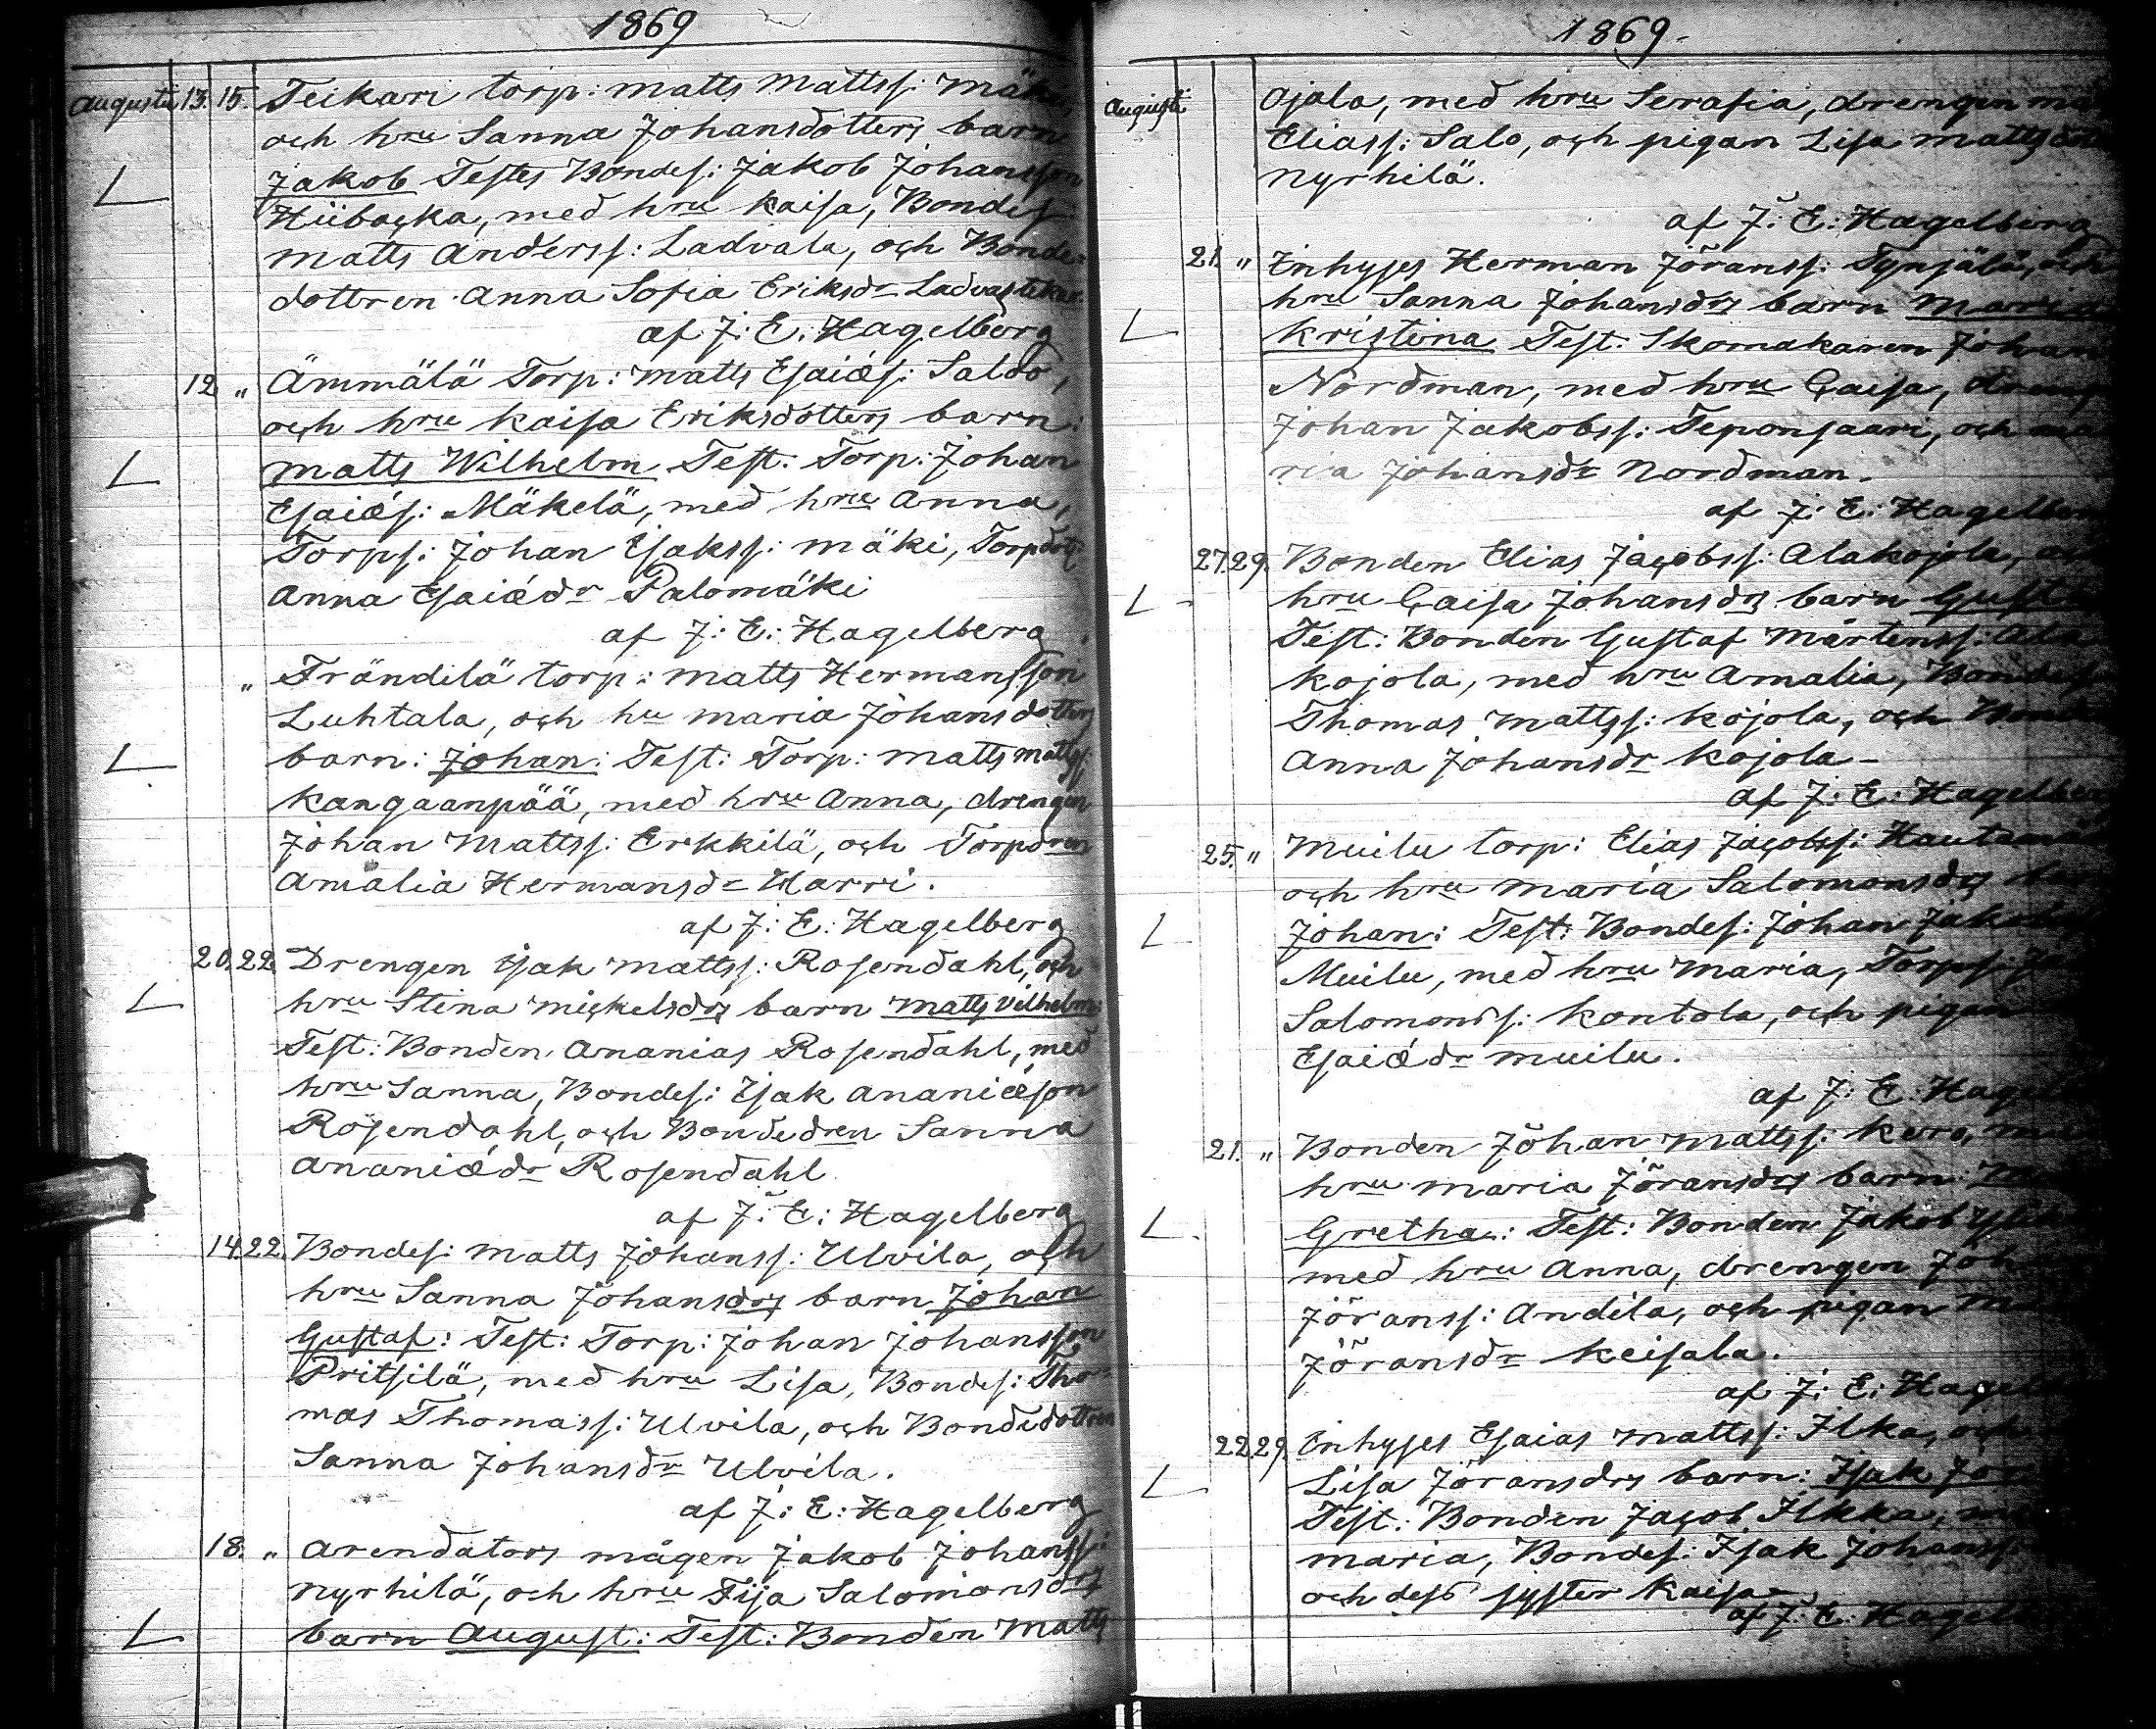 1869
Augusti 13. 15. Teikari torp: Matts Mattss:
och hru Sanna Johansdotters barn
Jakob Testes Bondes: Jakob Johansson
Hiibacka, med hru Kaisa, Bondes:
Matts Anderss: Ladvala, och Bonde-
dottren Anna Sofia Eriksdr
af J: E: Hagelberg
12 " Ämmälä Torp: Matts Esaiæs: Saldo,
och hru Kaisa Eriksdotters barn:
Matts Wilhelm Test. Torp: Johan
Esaiæs: Mäkelä, med hru Anna,
Torps: Johan Isakss: Mäki,
Anna Esaiædr Palomäki
af J: E: Hagelberg
" Frändilä torp: Matts Hermansson
Luhtala, och hu Maria Johansdotters
barn: Johan: Test: Torp: Matts Mattss:
Kangaanpää, med hru Anna, drengen
Johan Mattss: Erkkilä, och Torpdren
Amalia Hermansdr Harri.
af J: E: Hagelberg
20. 22. Drengen Isak Mattss: Rosendahl, och
hru Stina Mickelsdrs barn Matts Vilhelm:
Test: Bonden Ananias Rosendahl, med
hru Sanna, Bondes: Isak Ananiæson
Rosendahl, och Bondedren Sanna
Ananiædr Rosendahl
af J: E: Hagelberg
14. 22. Bondes: Matts Johanss: Ulvila, och
hru Sanna Johansdrs barn Johan
Gustaf: Test: Torp: Johan Johansson
Pritsilä, med hru Lisa, Bondes: Tho-
mas Thomass: Ulvila, och Bondedottren
Sanna Johansdr Ulvila.
af J: E: Hagelberg
18. " Arendators mågen Jakob Johanss:
Nyrhilä, och hru Fija Salomonsdrs
barn August: Test: Bonden Matts
1869.
Augusti
Ojala, med hru Serafia, drengen
Eliass: Salo, och pigan Lisa
Nyrhilä.
af J: E: Hagelberg
21. " Inhyses Herman Jöranss: Synjälä, och
hru Sanna Johansdrs barn Maria
Kristina Test: Skomakaren Johan
Nordman, med hru Caisa,
Johan Jakobss: Teponsaari, och Ma
ria Johansdr Nordman.
af J: E: Hagelberg
27. 29. Bonden Elias Jacobss: Alakojola,
hru Caisa Johansdrs barn
Test: Bonden Gustaf Mårtenss: Ala
kojola, med hru Amalia, Bondes
Thomas Mattss: Kojola, och
Anna Johansdr Kojola-
af J: E: Hagelberg
25. " Muilu torp: Elias Jacobss:
och hru Maria Salomonsdrs
Johan: Test: Bondes: Johan
Muilu, med hru Maria, Torps:
Salomonss: Kontola, och pigan
Esaiædr Muilu.
af J: E:
21. " Bonden Johan Mattss: Kero,
hru Maria Jöransdrs barn
Gretha: Test: Bonden Jakob
med hru Anna, drengen
Jöranss: Andila, och pigan
Jöransdr Keisala.
af J: E:
22. 29. Inhyses Esaias Mattss: Ilka, och
Lisa Jöransdrs barn: Isak
Test: Bonden Jacob Ilkka,
Maria, Bondes: Isak Johanss:
och dess syster Kaisa-
af J: E: